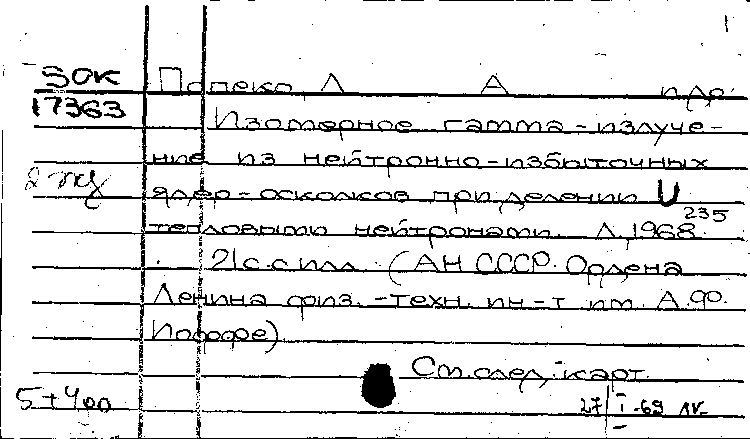 1
30к Попеко, Л А и др.
17363 Изомерное гамма-излуче-
ние из нейтронно-избыточных
ядер-осколков при делении U 235
тепловыми нейтронами. Л, 1968.
21с. с илл. (АН СССР. Ордена
Ленина физ.-техн. ин-т им. А.Ф.
Иоффе)
См. след. карт.
27/I-69